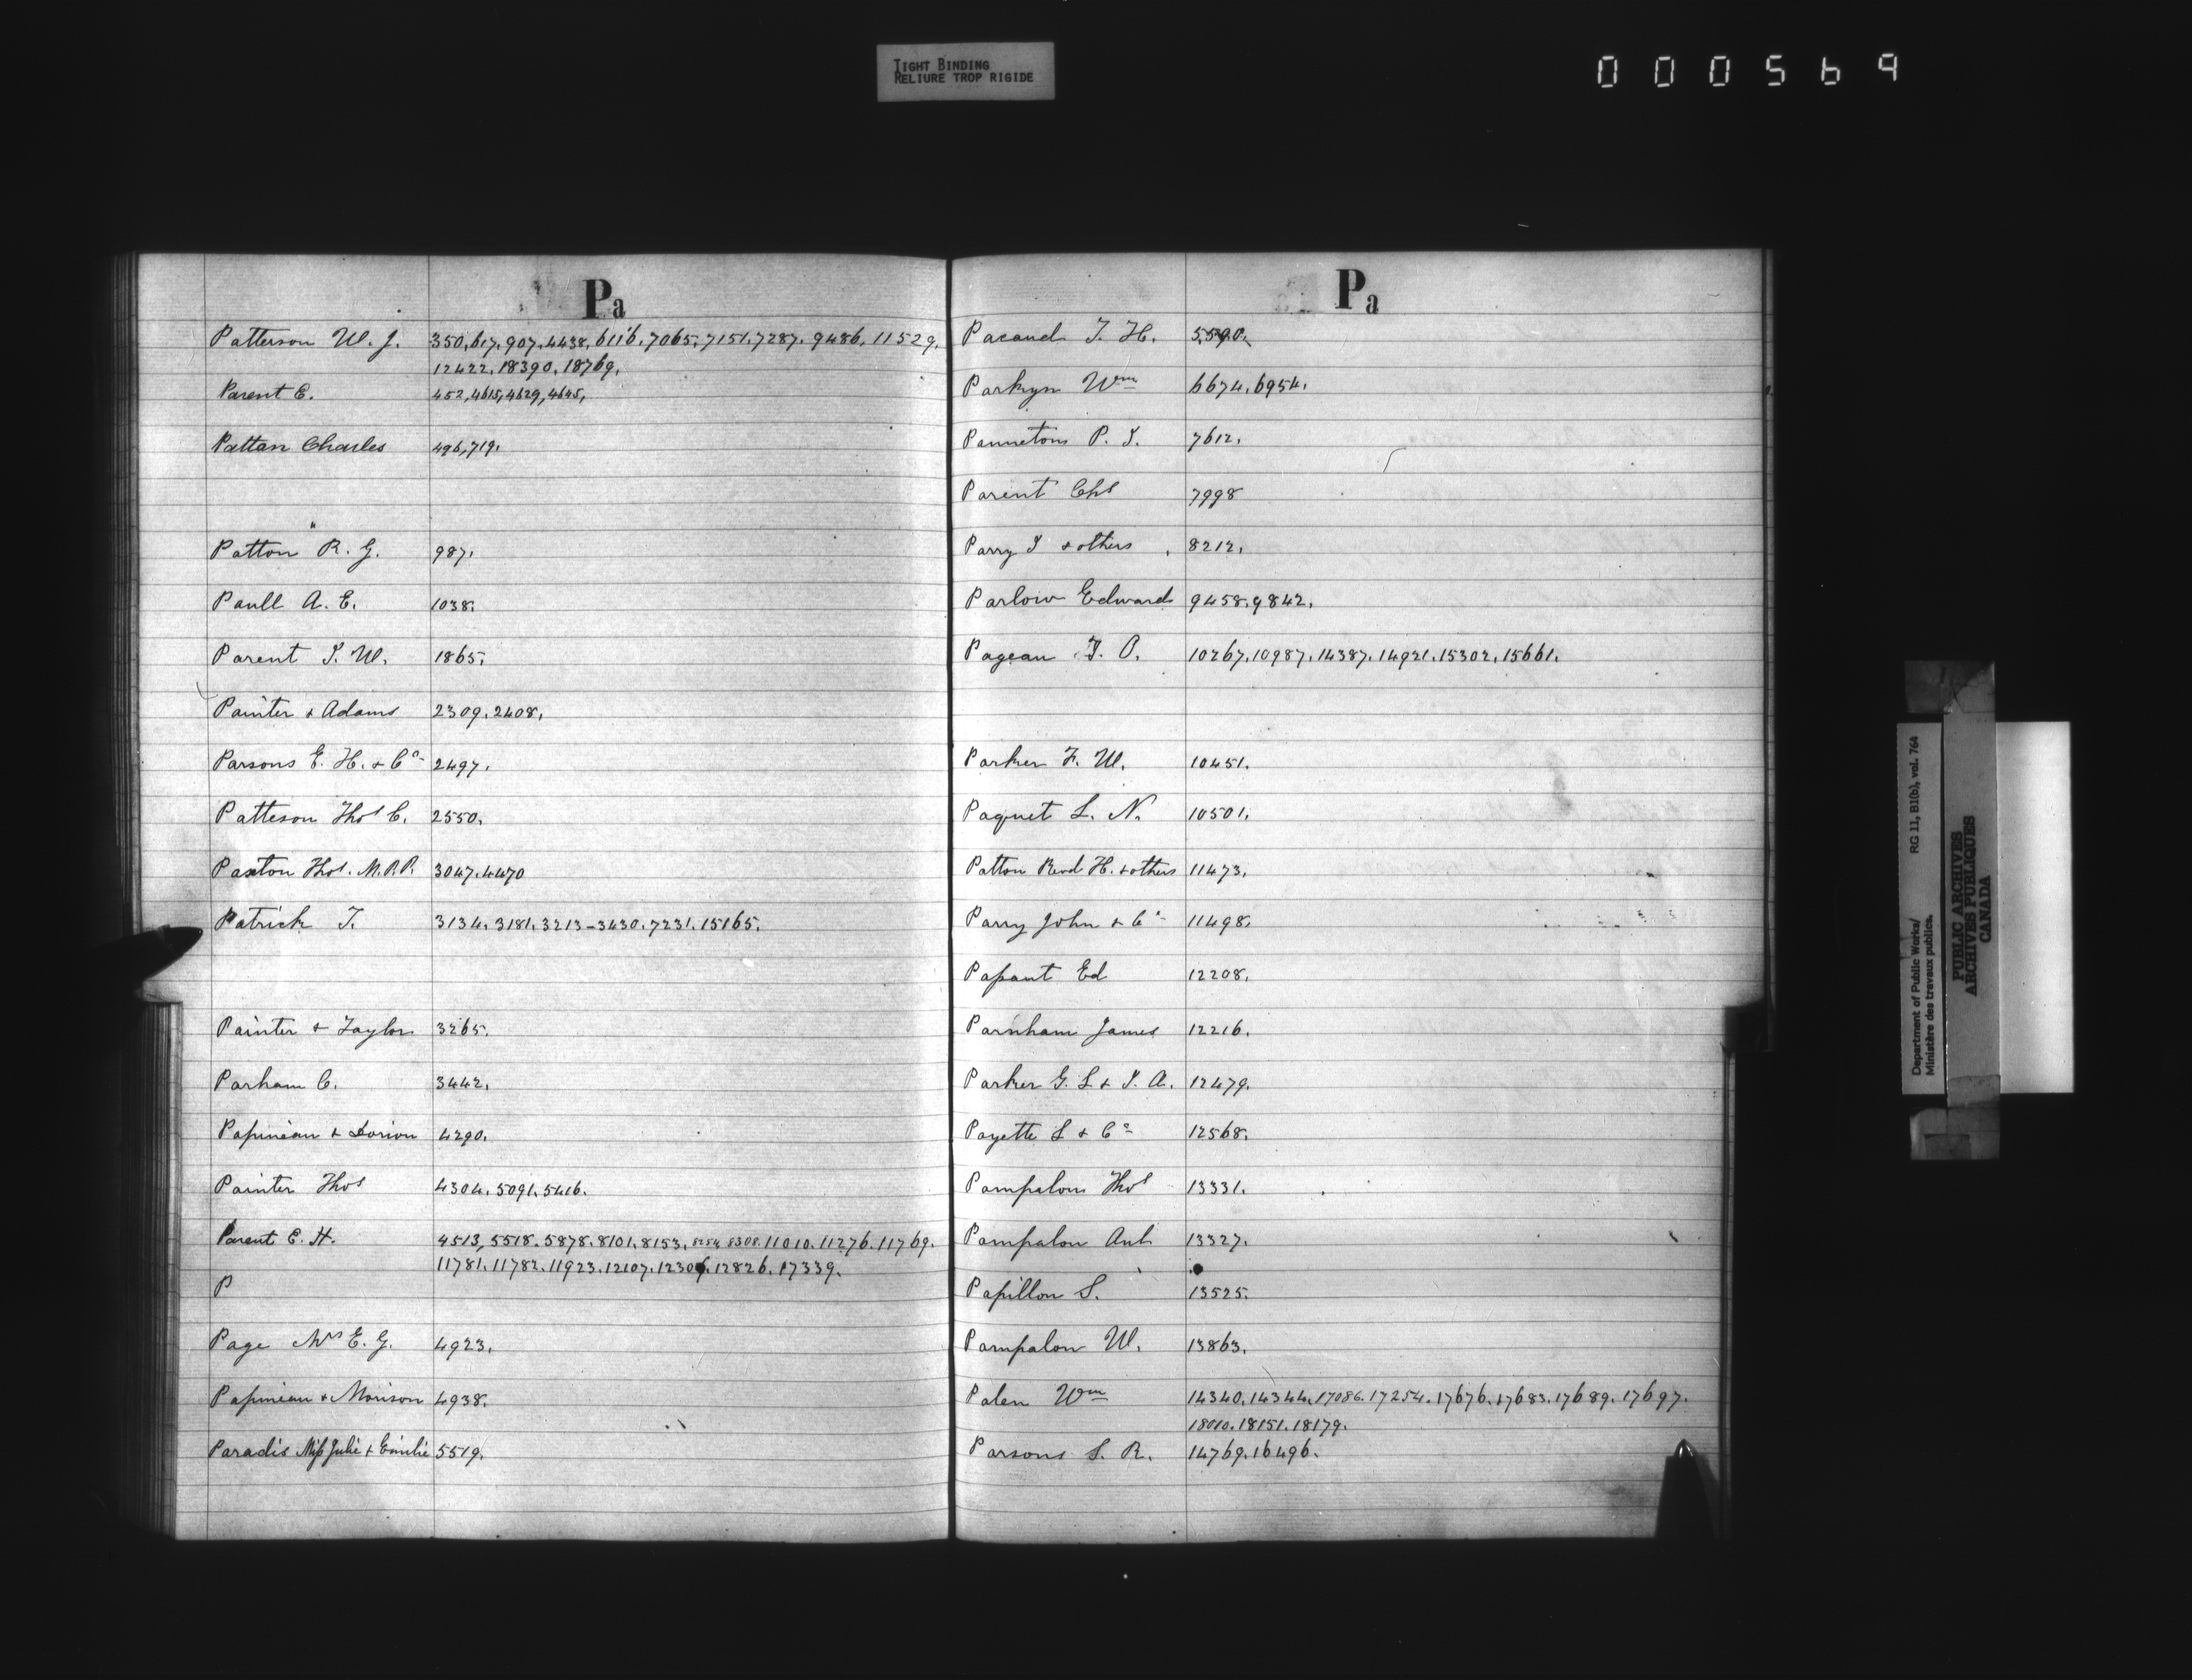 TIGHT BINDING
RELIURE TROP RIGIDE
000569
Pa
Patterson W. J. 350, 617, 907, 4438, 6116, 7065, 7151, 7287, 9486, 11529,
12422, 18390, 18769,
Parent E. 452, 4615, 4629, 4645,
Pattan Charles 496, 719.
"
Patton R. G. 987,
Paull A. E. 1038.
Parent S. W. 1865.
Painter & Adams 2309, 2408,
Parsons E. H. & Co 2497.
Patteson Thos C. 2550.
Paxton Thos. M.P.P. 3047, 4470
Patrick T. 3134. 3181. 3213-3430. 7231. 15165.
Painter & Taylor 3265.
Parham C. 3442.
Papineau & Dorion 4290.
Painter Thos 4304. 5091. 5416.
Parent E. H. 4513, 5518. 5878. 8101. 8153. 8254. 8308. 11010. 11276. 11769.
11781. 11782. 11923. 12107. 12306. 12826. 17339.
P
Page Mrs E. G. 4923.
Papineau & Morison 4938.
Paradis Miss Julie & Emilie 5519.
Pa
Pacaud T. H. 5590.
Parkyn Wm 6674. 6954.
Pannetons P. T. 7612.
Parent Chs 7998
Parry T & others, 8212.
Parlow Edward 9458. 9842.
Pageau T. O. 10267. 10987. 14387. 14921. 15302. 15661.
Parker F. W. 10451.
Paquet L. N. 10501.
Patton Revd H. & others 11473.
Parry John & Co 11498.
Papant Ed 12208.
Parnham James 12216.
Parker G. L & S. A. 12479.
Payette L & Co 12568.
Pampalon Thos 13331.
Pampalon Ant 13327.
Papillon S. 13525.
Pampalon W. 13863.
Palen Wm 14340. 14344. 17086. 17254. 17676. 17683. 17689. 17697.
18010. 18151. 18179.
Parsons S. R. 14769. 16496.
Department of Public Works/
Ministère des travaux publics.
RG 11, B1(b), vol. 764
PUBLIC ARCHIVES
ARCHIVES PUBLIQUES
CANADA